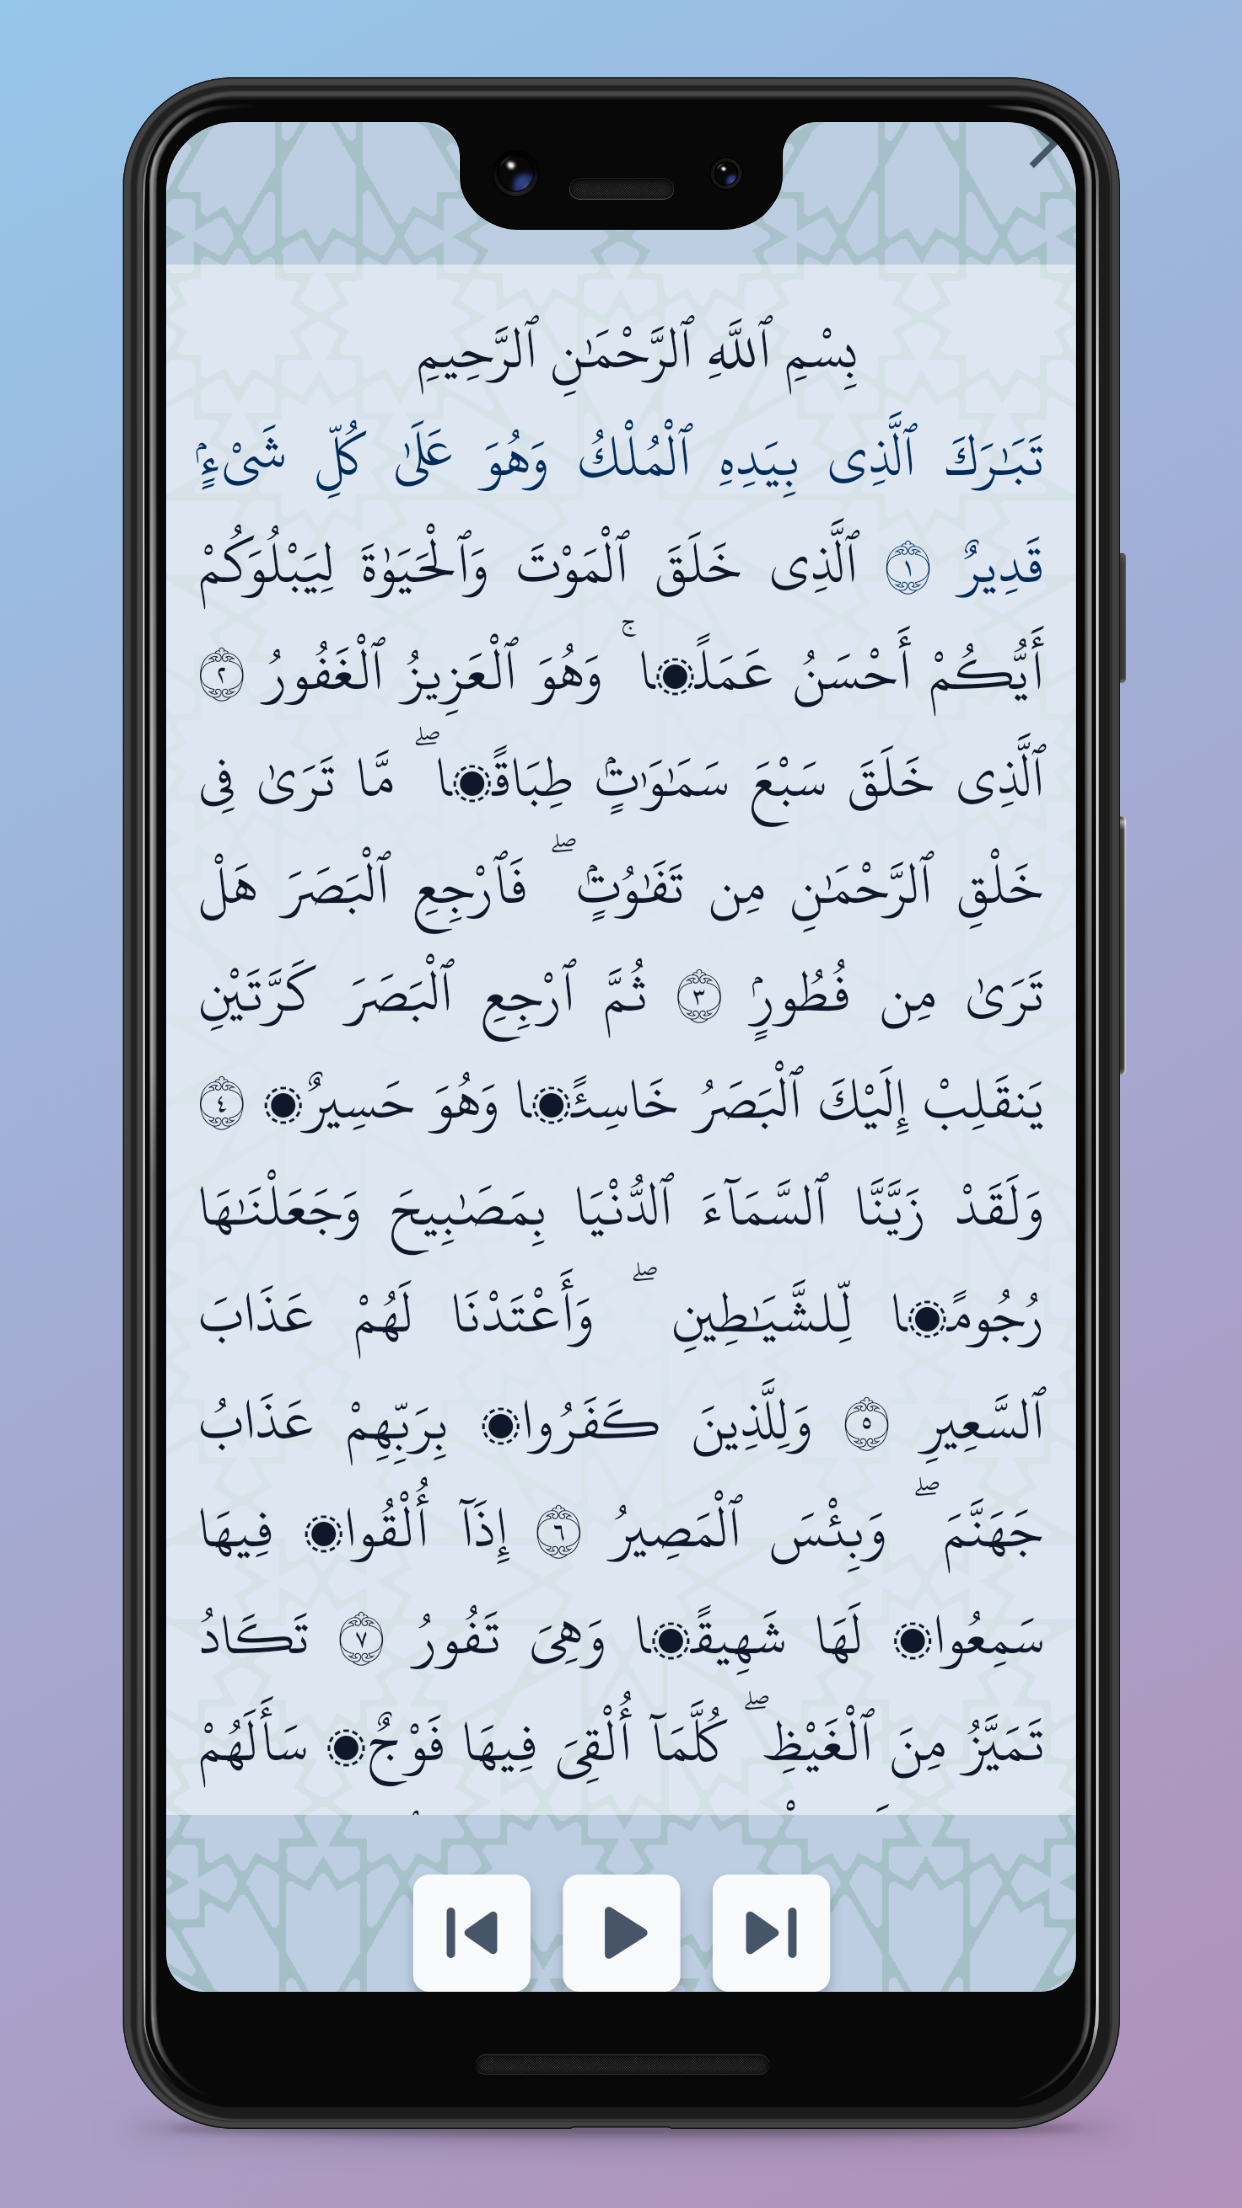 بِسْمِ ٱللَّهِ ٱلرَّحْمَـٰنِ ٱلرَّحِيمِ
تَبَـٰرَكَ ٱلَّذِى بِيَدِهِ ٱلْمُلْكُ وَهُوَ عَلَىٰ كُلِّ شَىْءٍۢ
قَدِيرٌ ١ ٱلَّذِى خَلَقَ ٱلْمَوْتَ وَٱلْحَيَوٰةَ لِيَبْلُوَكُمْ
أَيُّكُمْ أَحْسَنُ عَمَلًۭا ۚ وَهُوَ ٱلْعَزِيزُ ٱلْغَفُورُ ٢
ٱلَّذِى خَلَقَ سَبْعَ سَمَـٰوَٰتٍۢ طِبَاقًۭا ۖ مَّا تَرَىٰ فِى
خَلْقِ ٱلرَّحْمَـٰنِ مِن تَفَـٰوُتٍۢ ۖ فَٱرْجِعِ ٱلْبَصَرَ هَلْ
تَرَىٰ مِن فُطُورٍۢ ٣ ثُمَّ ٱرْجِعِ ٱلْبَصَرَ كَرَّتَيْنِ
يَنقَلِبْ إِلَيْكَ ٱلْبَصَرُ خَاسِئًۭا وَهُوَ حَسِيرٌۭ ٤
وَلَقَدْ زَيَّنَّا ٱلسَّمَآءَ ٱلدُّنْيَا بِمَصَـٰبِيحَ وَجَعَلْنَـٰهَا
رُجُومًۭا لِّلشَّيَـٰطِينِ ۖ وَأَعْتَدْنَا لَهُمْ عَذَابَ
ٱلسَّعِيرِ ٥ وَلِلَّذِينَ كَفَرُوا۟ بِرَبِّهِمْ عَذَابُ
جَهَنَّمَ ۖ وَبِئْسَ ٱلْمَصِيرُ ٦ إِذَآ أُلْقُوا۟ فِيهَا
سَمِعُوا۟ لَهَا شَهِيقًۭا وَهِىَ تَفُورُ ٧ تَكَادُ
تَمَيَّزُ مِنَ ٱلْغَيْظِ ۖ كُلَّمَآ أُلْقِىَ فِيهَا فَوْجٌۭ سَأَلَهُمْ